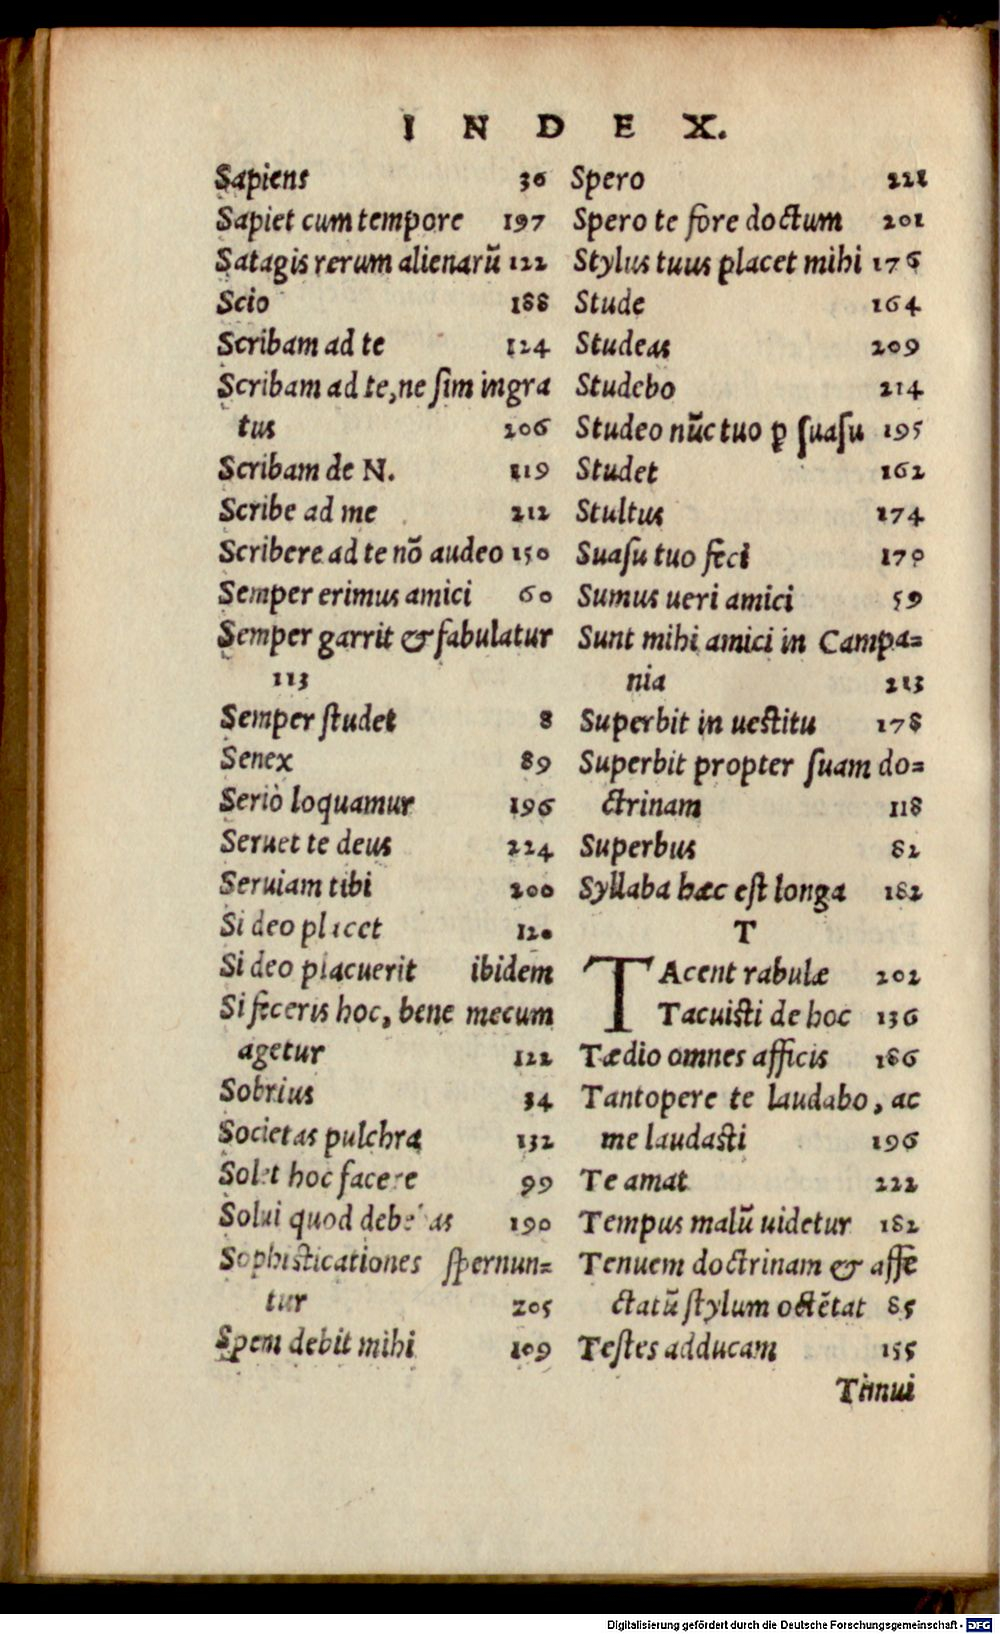 INDEX.
Sapiens 36
Sapiet cum tempore 197
Satagis rerum alienarũ 122
Scio 188
Scribam ad te 124
Scribam ad te, ne ſim ingra
tus 206
Scribam de N. 119
Scribe ad me 212
Scribere ad te nõ audeo 150
Semper erimus amici 60
Semper garrit & fabulatur
113
Semper ſtudet 8
Senex 89
Seriò loquamur 196
Seruet te deus 224
Seruiam tibi 200
Si deo placet 120
Si deo placuerit ibidem
Si feceris hoc, bene mecum
agetur 122
Sobrius 34
Societas pulchra 132
Solet hoc facere 99
Solui quod debebas 190
Sophiſticationes ſpernun=
tur 205
Spem debit mihi 109
Spero 221
Spero te fore doctum 201
Stylus tuus placet mihi 176
Stude 164
Studeas 209
Studebo 214
Studeo nũc tuo ꝑ ſuaſu 195
Studet 162
Stultus 174
Suaſu tuo feci 170
Sumus ueri amici 59
Sunt mihi amici in Campa=
nia 213
Superbit in ueſtitu 178
Superbit propter ſuam do=
ctrinam 118
Superbus 82
Syllaba hæc eſt longa 182
T
TAcent rabulæ 202
Tacuiſti de hoc 136
Tædio omnes afficis 186
Tantopere te laudabo, ac
me laudaſti 196
Te amat 222
Tempus malũ uidetur 182
Tenuem doctrinam & affe
ctatũ ſtylum oſtẽtat 85
Teſtes adducam 155
Timui
Digitalisierung gefördert durch die Deutsche Forschungsgemeinschaft - DFG